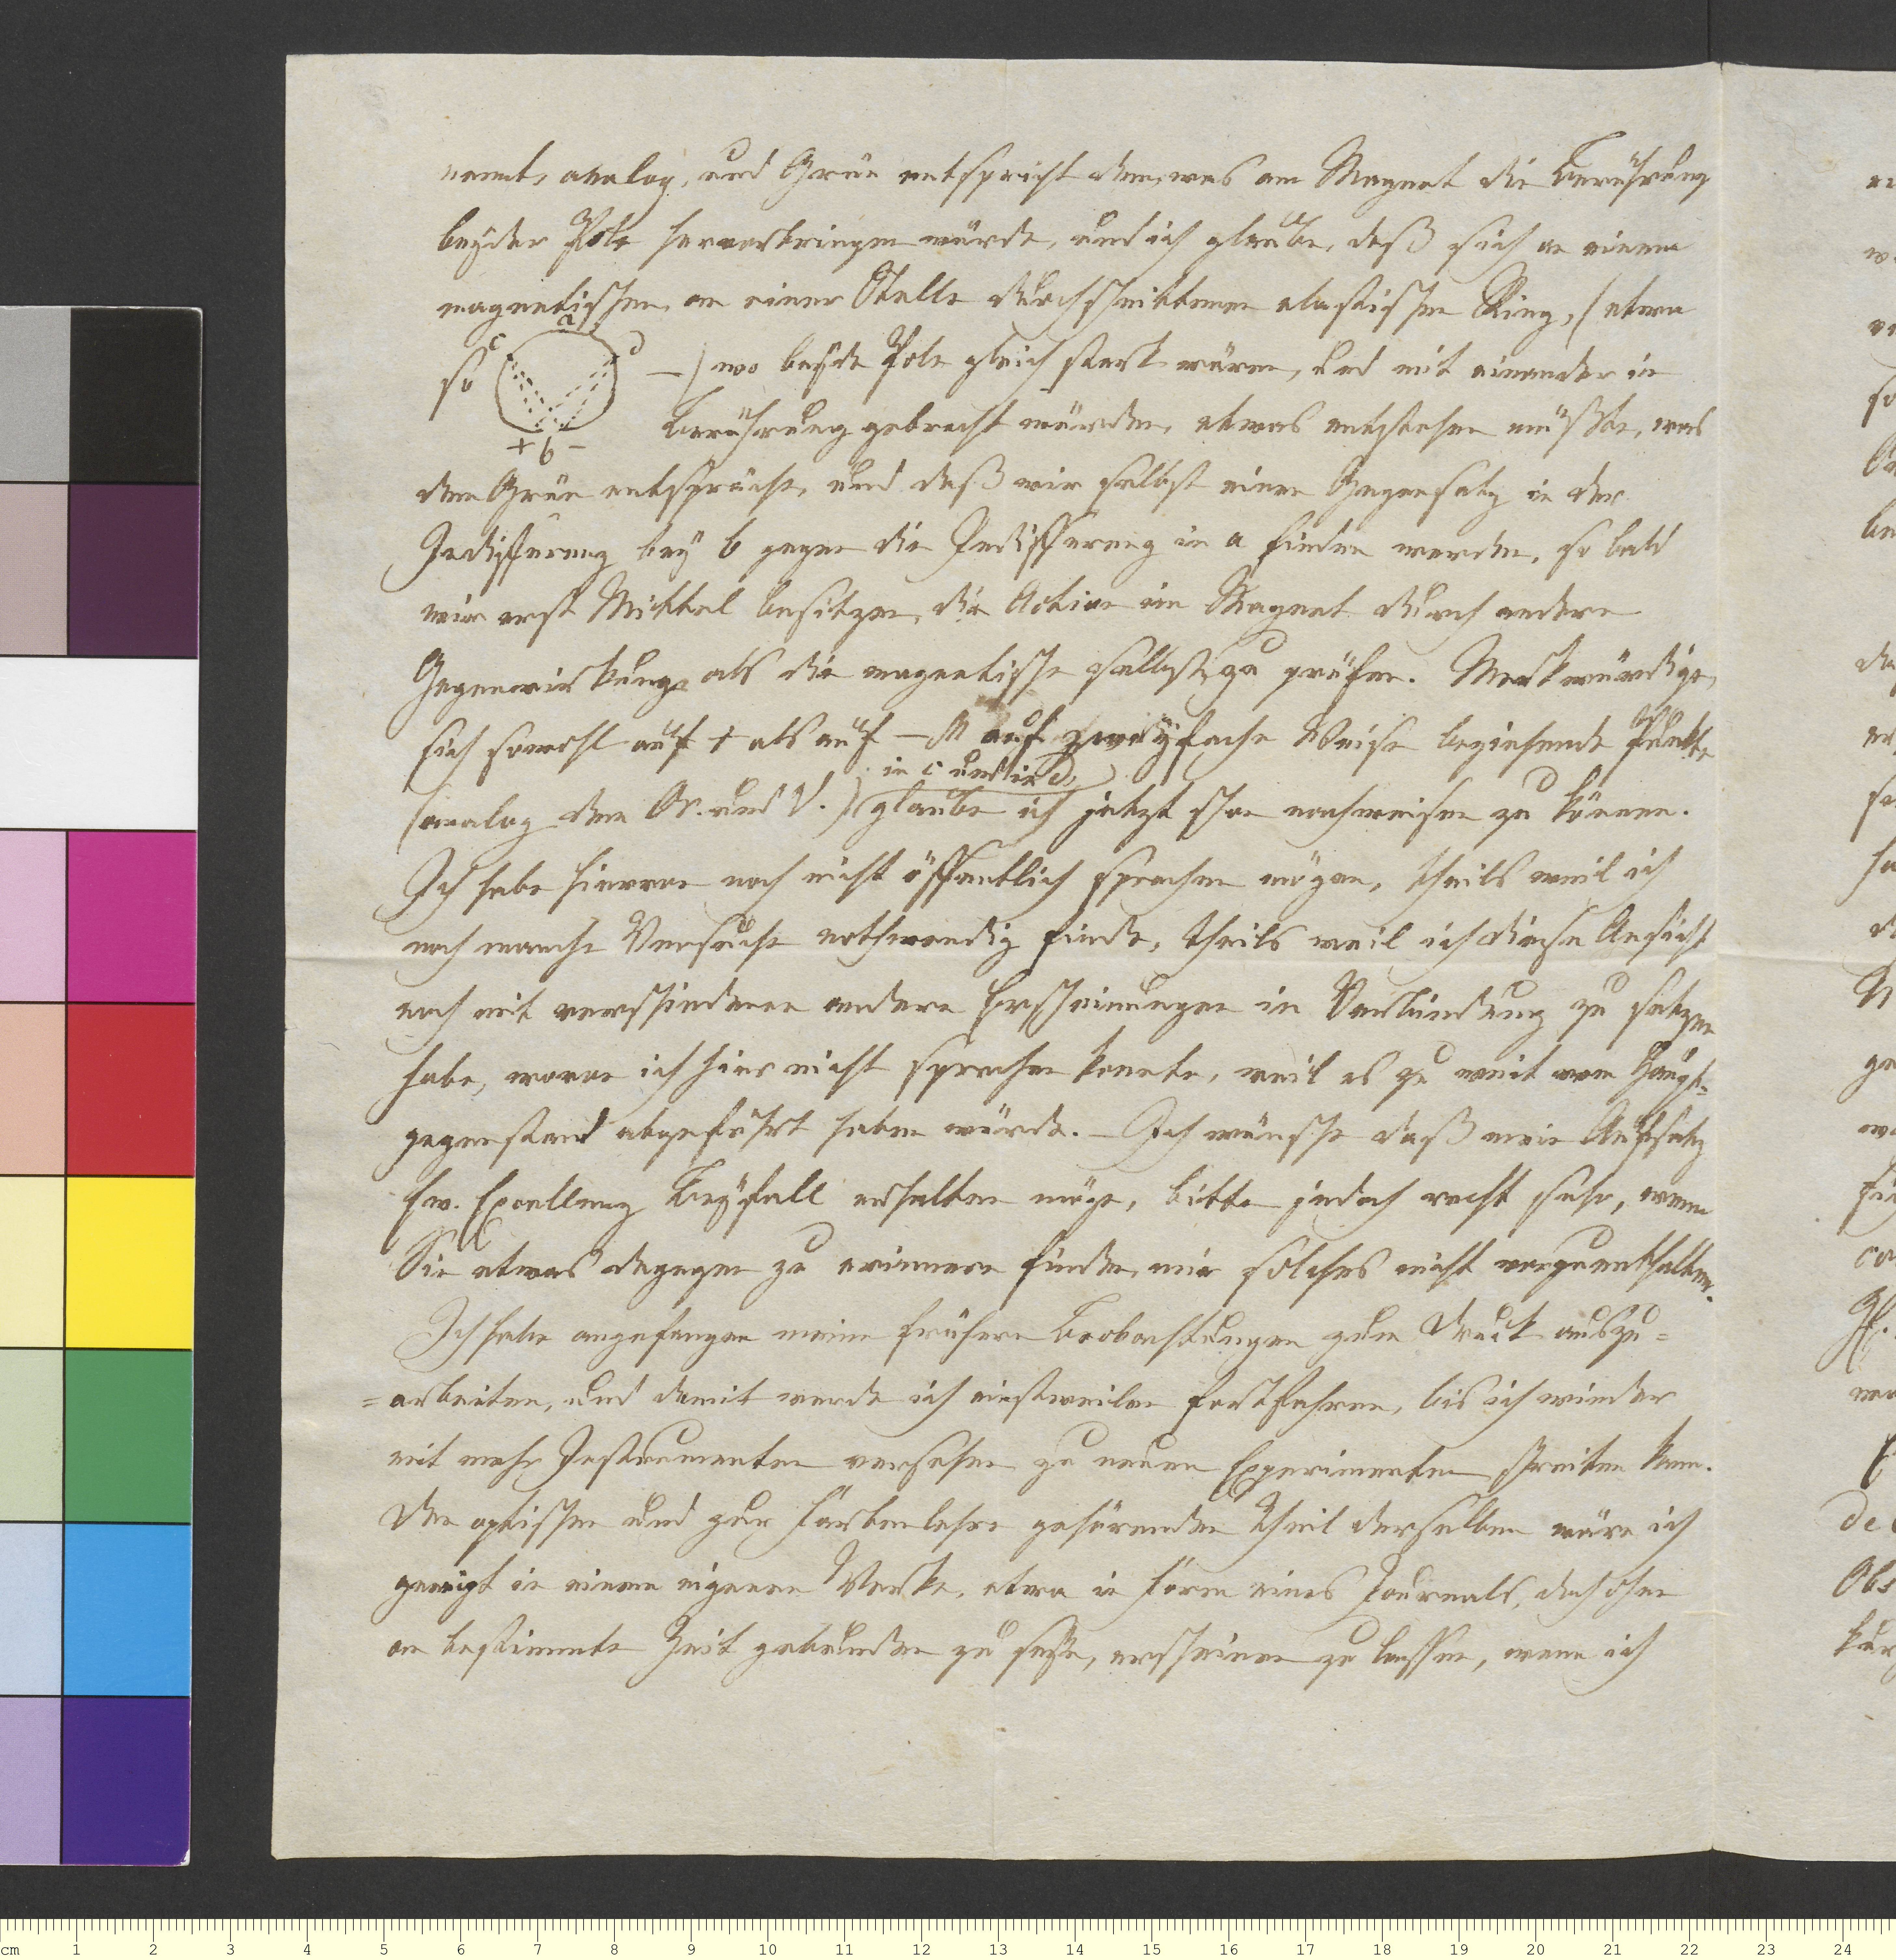 nannt, analog, und Grün entspricht dem, was am Magnet die Berührung
beyder Pole hervorbringen würde, und ich glaube, daß sich an einem
magnetischen, an einer Stelle durchschnittenen elastischen Ring, (etwa
so — ) wo beyde Pole gleich stark wären, und mit einander in
c a d
+ b -
Berührung gebracht würden, etwas entstehen müßte, was
dem Grün entspräche, und daß wir selbst einen Gegensatz in der
Indifferenz bey b gegen die Indifferenz in a finden werden, so bald
wir erst Mittel besitzen, die Action im Magnet durch andere
Gegenwirkung als die magnetische selbst, zu prüfen. Merkwürdige,
sich sowohl auf + als auf — M auf zweyfache Weise beziehende Punkte
in c und in d,
(analog dem Or. und V.) glaube ich jetzt schon nachweisen zu können.
Ich habe hiervon noch nicht öffentlich sprechen mögen, theils weil ich
noch manche Versuche nothwendig finde, theils weil ich diese Ansicht
noch mit verschiedenen andern Erscheinungen in Verbindung zu setzen
habe, wovon ich hier nicht sprechen konnte, weil es zu weit vom Haupt-
gegenstand abgeführt haben würde. — Ich wünsche daß mein Aufsatz
Ew. Excellenz Beyfall erhalten möge, bitte jedoch recht sehr, wenn
Sie etwas dagegen zu erinnern finden, mir solches nicht vorzuenthalten.
Ich habe angefangen meine frühern Beobachtungen zum Druck auszu=
=arbeiten, und damit werde ich einstweilen fortfahren, bis ich wieder
mit mehr Instrumenten versehen zu neuen Experimenten schreiten kann.
Den optischen und zur Farbenlehre gehörenden Theil derselben wäre ich
geneigt in einem eigenen Werke, etwa in Form eines Journals, doch ohne
an bestimmte Zeit gebunden zu seyn, erscheinen zu lassen, wenn ich